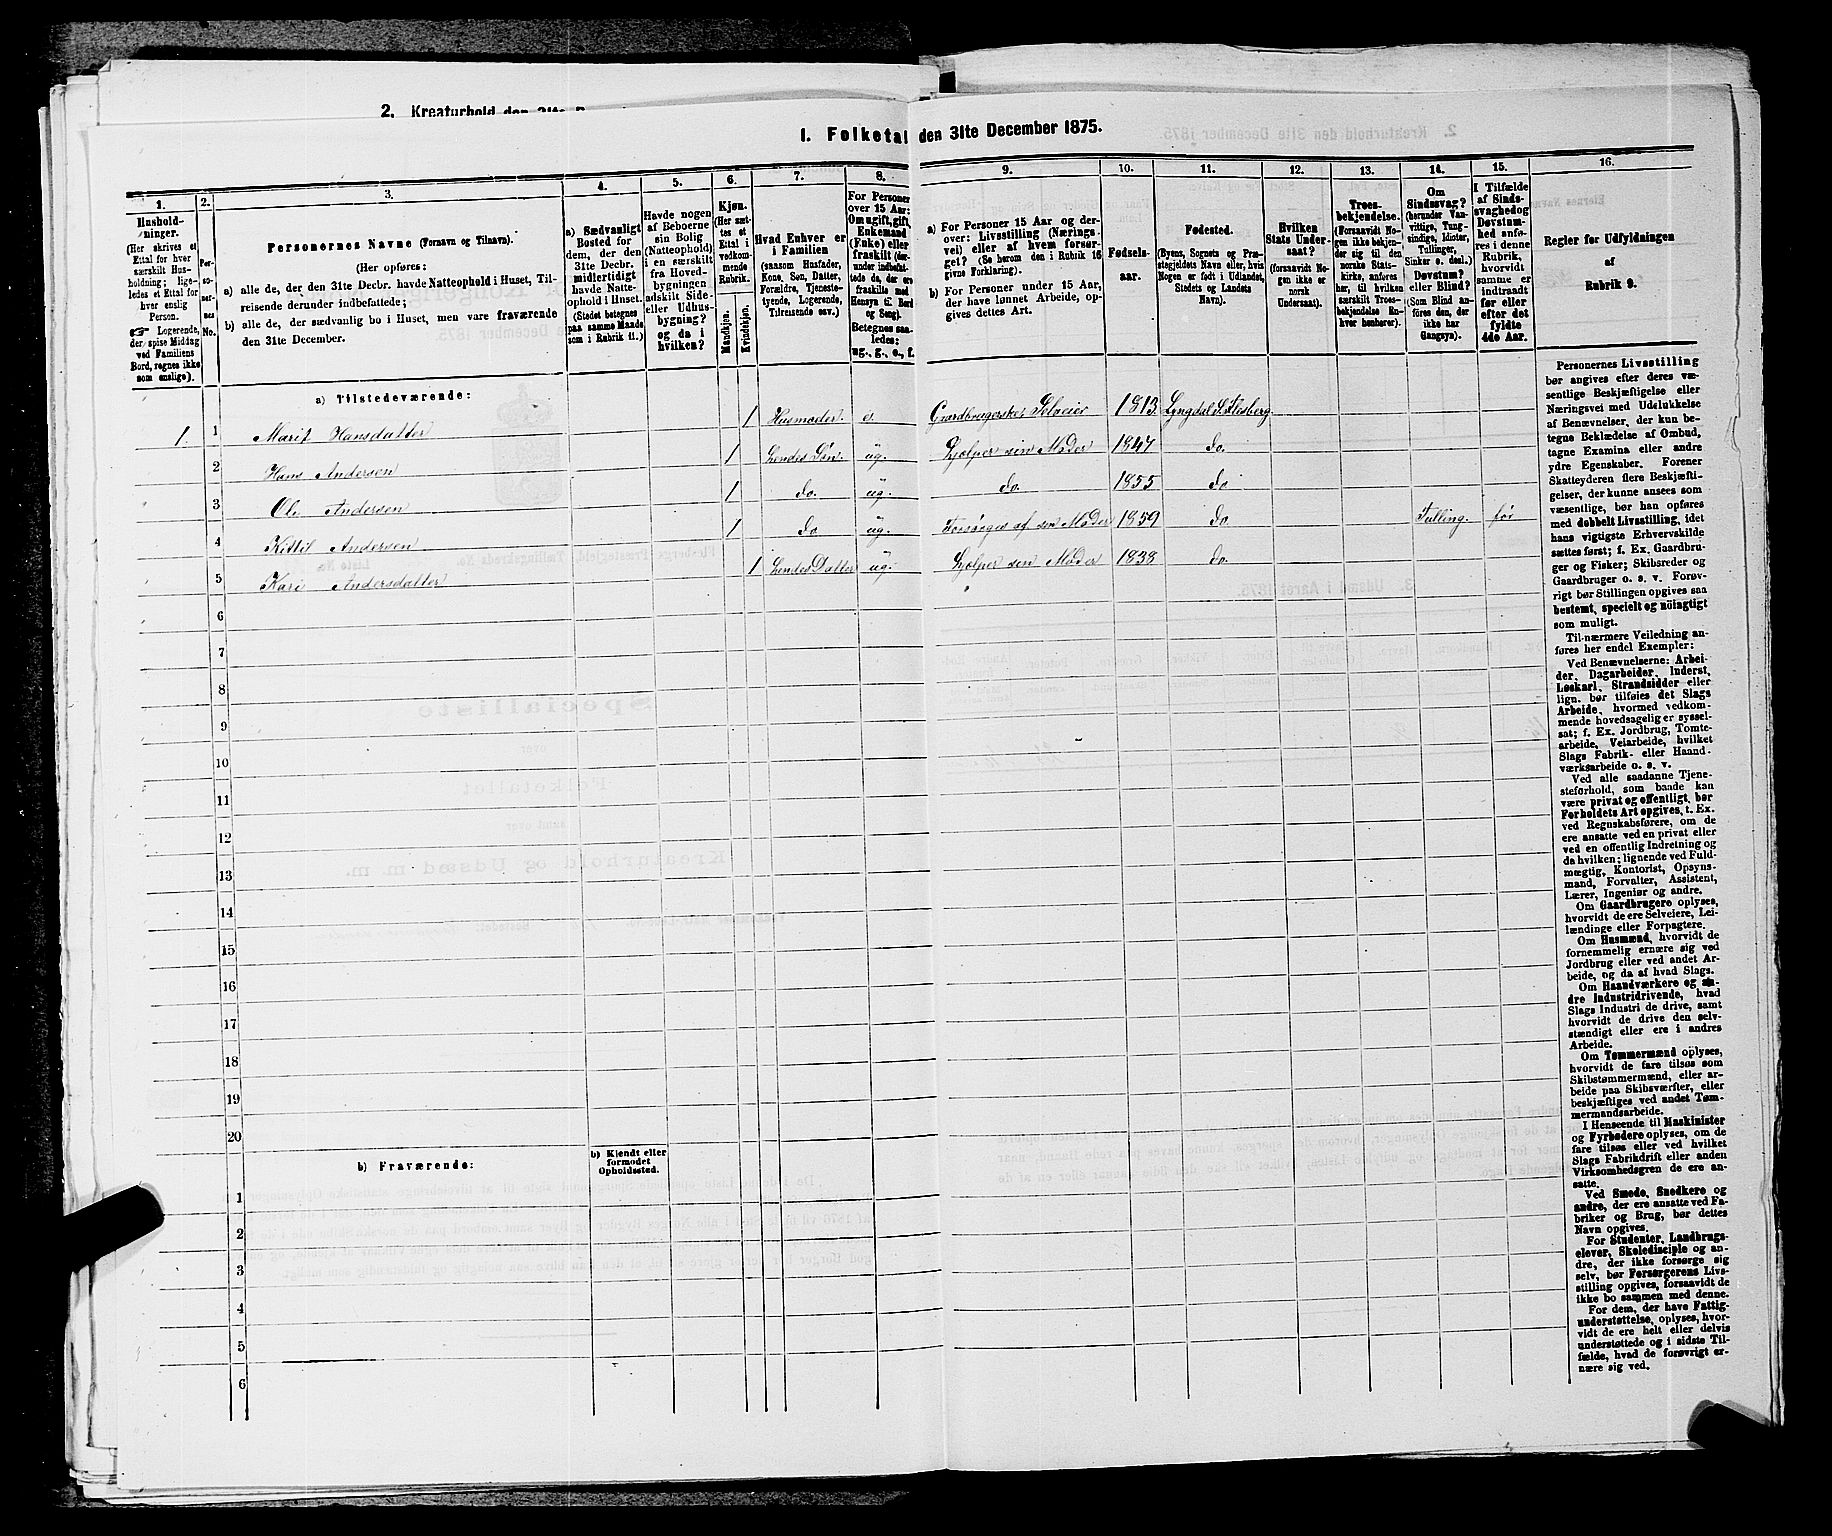 2. Kreaturhold den 31te
I. Folketal den 31te December 1875.
1.
Hushold-
ninger.
(Her skrives et
Ettal for hver
særskilt Hus-
holdning; lige-
ledes et Ettal for
hver enslig
Person.
☞ Logerende,
der spise Middag
ved Familiens
Bord, regnes ikke
som enslige).
2.
Per-
so-
ner-
nes
No.
3.
Personernes Navne (Fornavn og Tilnavn).
(Her opføres:
a) alle de, der den 31te Decbr. havde Natteophold i Huset, Til-
reisende derunder indbefattede;
b) alle de, der sædvanlig bo i Huset, men vare fraværende
den 31te December.
4.
a) Sædvanligt
Bosted for
dem, der den
31te Decbr.
midlertidigt
havde Natte-
ophold i Huset.
(Stedet betegnes
paa samme Maade
som i Rubrik 11.)
5.
Havde nogen
af Beboerne
sin Bolig
(Natteophold)
i en særskilt
fra Hoved-
bygningen
adskilt Side-
eller Udhus-
bygning?
og da i
hvilken?
6.
Kjøn.
(Her sæt-
tes et
Ettal i
vedkom-
mende
Rubrik.
Mandkjøn.
Kvindekjøn.
7.
Hvad Enhver er
i Familien
(saasom Husfader,
Kone, Søn, Datter,
Forældre, Tjeneste-
tyende, Logerende,
Tilreisende osv.)
8.
For Personer
over 15 Aar:
Om ugift, gift,
Enkemand
(Enke) eller
fraskilt (der-
under indbefat-
tede de, der ere
fraskilte med
Hensyn til Bord
og Seng).
Betegnes saa-
ledes:
ug., g., e., f.
9.
a) For Personer 15 Aar og der-
over: Livsstilling (Nærings-
vei) eller af hvem forsør-
get? (Se herom den i Rubrik 16
givne Forklaring).
b) For Personer under 15 Aar,
der have lønnet Arbeide, op-
gives dettes Art.
10.
Fødsels-
aar.
11.
Fødested.
(Byens, Sognets og Præ-
stegjeldets Navn eller, hvis
Nogen er født i Udlandet,
Stedets og Landets
Navn).
12.
Hvilken
Stats Under-
saat?
(forsaavidt No-
gen ikke er
norsk
Undersaat).
13.
Troes-
bekjendelse.
(Forsaavidt No-
gen ikke bekjen-
der sig til den
norske Stats-
kirke, anføres
her, til hvilken
særskilt Troes-
bekjendelse En-
hver henhører).
14.
Om
Sindssvag?
(herunder Van-
vittige, Tung-
sindige, Idioter,
Tullinger,
Sinker o. desl.)
Døvstum?
eller Blind?
(Som Blind an-
føres den, der
ikke har
Gangsyn).
15.
I Tilfælde
af Sinds-
svaghed og
Døvstum-
hed anfø-
res i denne
Rubrik,
hvorvidt
samme er
indtraadt
før eller
efter det
fyldte
4de Aar.
16.
Regler for Udfyldningen
af
Rubrik 9.
a) Tilstedeværende:
1. 1 Marit Hansdatter 1 Husmoder. e. Gaardbrugerske, Selveier 1813. Lyngdal S. Flesberg.
2 Hans Andersen 1 Hendes Søn. ug. Hjælper sin Moder 1847 do.
3 Ole Andersen 1 do. ug. do. 1855 do
4 Kittil Andersen 1 do ug. Forsørges af sin Moder 1859 do. Tulling. før
5 Kari Andersdatter 1 Hendes Datter ug. Hjælper sin Moder 1838 do.
6
7
8
9
10
11
12
13
14
15
16
17
18
19
20
b) Fraværende:
b) Kjendt eller
formodet
Opholdssted.
1
2
3
4
5
6
Personernes Livsstilling
bør angives efter deres væ-
sentlige Beskjæftigelse eller
Næringsvei med Udelukkelse
af Benævnelser, der kun be-
tegne Beklædelse af Ombud,
tagne Examina eller andre
ydre Egenskaber. Forener
Skatteyderen flere Beskjæfti-
gelser, der kunne ansees som
væsentlige, bør han opføres
med dobbelt Livsstilling, idet
hans vigtigste Erhvervskilde
sættes først; f. Ex. Gaardbru-
ger og Fisker; Skibsreder og
Gaardbruger o. s. v. Forøv-
rigt bør Stillingen opgives saa
bestemt, specielt og nöiagtigt
som muligt.
Til nærmere Veiledning an-
føres her endel Exempler:
Ved Benævnelserne: Arbei-
der, Dagarbeider, Inderst,
Løskarl, Strandsidder eller
lign. bør tilføies det Slags
Arbeide, hvormed vedkom-
mende hovedsagelig er syssel-
sat; f. Ex. Jordbrug, Tomte-
arbeide, Veiarbeide, hvilket
Slags Fabrik- eller Haand-
værksarbeide o. s. v.
Ved alle saadanne Tjene-
steforhold, som baade kan
være privat og offentligt, bør
Forholdets Art opgives, t. Ex.
ved Regnskabsførere, om de
ere ansatte ved en privat eller
ved en offentlig Indretning og
da hvilken; lignende ved Fuld-
mægtig, Kontorist, Opsyns-
mand, Forvalter, Assistent,
Lærer, Ingeniør og andre.
Om Gaardbrugere oplyses,
hvorvidt de ere Selveiere, Lei-
lændinge eller Forpagtere.
Om Husmænd, hvorvidt de
fornemmelig ernære sig ved
Jordbrug eller ved andet Ar-
beide, og da af hvad Slags.
Om Haandværkere og an-
dre Industridrivende, hvad
Slags Industri de drive, samt
hvorvidt de drive den selv-
stændigt eller ere i andres
Arbeide.
Om Tømmermænd oplyses,
hvorvidt de fare tilsøs som
Skibstømmermænd, eller ar-
beide paa Skibsværfter, eller
beskjæftiges ved andet Tøm-
mermandsarbeide.
I Henseende til Maskinister
og Fyrbødere oplyses, om de
fare tilsøs eller ved hvilket
Slags Fabrikdrift eller anden
Virksomhedsgren de ere an-
satte.
Ved Smede, Snedkere og
andre, der ere ansatte ved Fa-
briker og Brug, bør dettes
Navn opgives.
For Studenter, Landbrugs-
elever, Skoledisciple og an-
dre, der ikke forsørge sig
selv, bør Forsørgerens Livs-
stilling opgives, forsaavidt de
ikke bo sammen med denne.
For dem, der have Fattig-
understøttelse, oplyses, hvor-
vidt de ere helt eller delvis
understøttede og i sidste Til-
fælde, hvad de forøvrigt er-
nære sig ved.